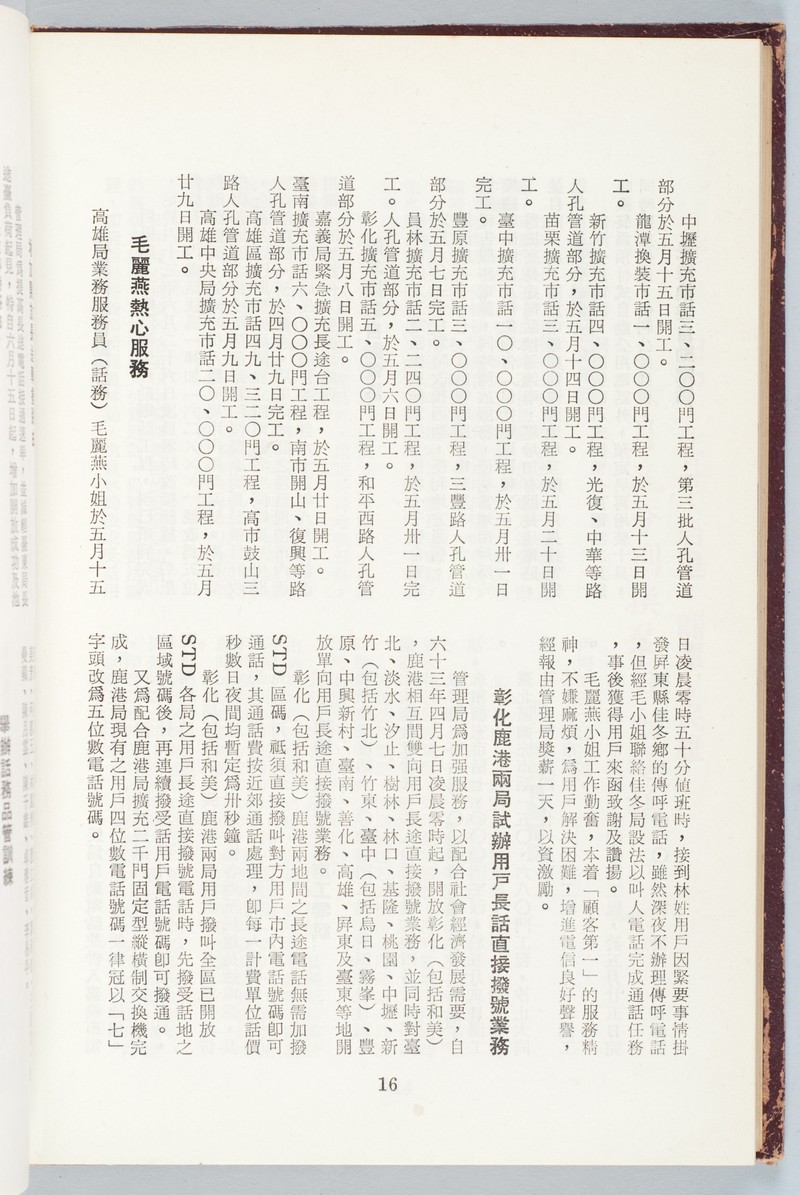 中壢擴充市話三、二〇〇門工程，第三批人孔管道
部分於五月十五日開工。
龍潭換裝市話一、〇〇〇門工程，於五月十三日開
工。
新竹擴充市話四、〇〇〇門工程，光復、中華等路
人孔管道部分，於五月十四日開工。
苗栗擴充市話三、〇〇〇門工程，於五月二十日開
工。
臺中擴充市話一〇、〇〇〇門工程，於五月卅一日
完工。
豐原擴充市話三、〇〇〇門工程，三豐路人孔管道
部分於五月七日完工。
員林擴充市話二、二四〇門工程，於五月卅一日完
工。人孔管道部分，於五月六日開工。
彰化擴充市話五、〇〇〇門工程，和平西路人孔管
道部分於五月八日開工。
嘉義局緊急擴充長途台工程，於五月廿日開工。
臺南擴充市話六、〇〇〇門工程，南市開山、復興等路
人孔管道部分，於四月廿九日完工。
高雄區擴充市話四九、三二〇門工程，高市鼓山三
路人孔管道部分於五月九日開工。
高雄中央局擴充市話二〇、〇〇〇門工程，於五月
廿九日開工。
毛麗燕熱心服務
高雄局業務服務員（話務）毛麗燕小姐於五月十五
日凌晨零時五十分值班時，接到林姓用戶因緊要事情掛
發屏東縣佳冬鄉的傳呼電話，雖然深夜不辦理傳呼電話
，但經毛小姐聯絡佳冬局設法以叫人電話完成通話任務
，事後獲得用戶來函致謝及讚揚。
毛麗燕小姐工作勤奮，本着「顧客第一」的服務精
神，不嫌麻煩，爲用戶解決困難，增進電信良好聲譽，
經報由管理局獎薪一天，以資激勵。
彰化鹿港兩局試辦用戶長話直接撥號業務
管理局爲加强服務，以配合社會經濟發展需要，自
六十三年四月七日凌晨零時起，開放彰化（包括和美）
，鹿港相互間雙向用戶長途直接撥號業務，並同時對臺
北、淡水、汐止、樹林、林口、基隆、桃園、中壢、新
竹（包括竹北）、竹東、臺中（包括烏日、霧峯）、豐
原、中興新村、臺南、善化、高雄、屏東及臺東等地開
放單向用戶長途直接撥號業務。
彰化（包括和美）鹿港兩地間之長途電話無需加撥
STD 區碼，祗須直接撥叫對方用戶市內電話號碼卽可
通話，其通話費按近郊通話處理，卽每一計費單位話價
秒數日夜間均暫定爲卅秒鐘。
彰化（包括和美）鹿港兩局用戶撥叫全區已開放
STD 各局之用戶長途直接撥號電話時，先撥受話地之
區域號碼後，再連續撥受話用戶電話號碼卽可撥通。
又爲配合鹿港局擴充二千門固定型縱橫制交換機完
成，鹿港局現有之用戶四位數電話號碼一律冠以「七」
字頭改爲五位數電話號碼。
16